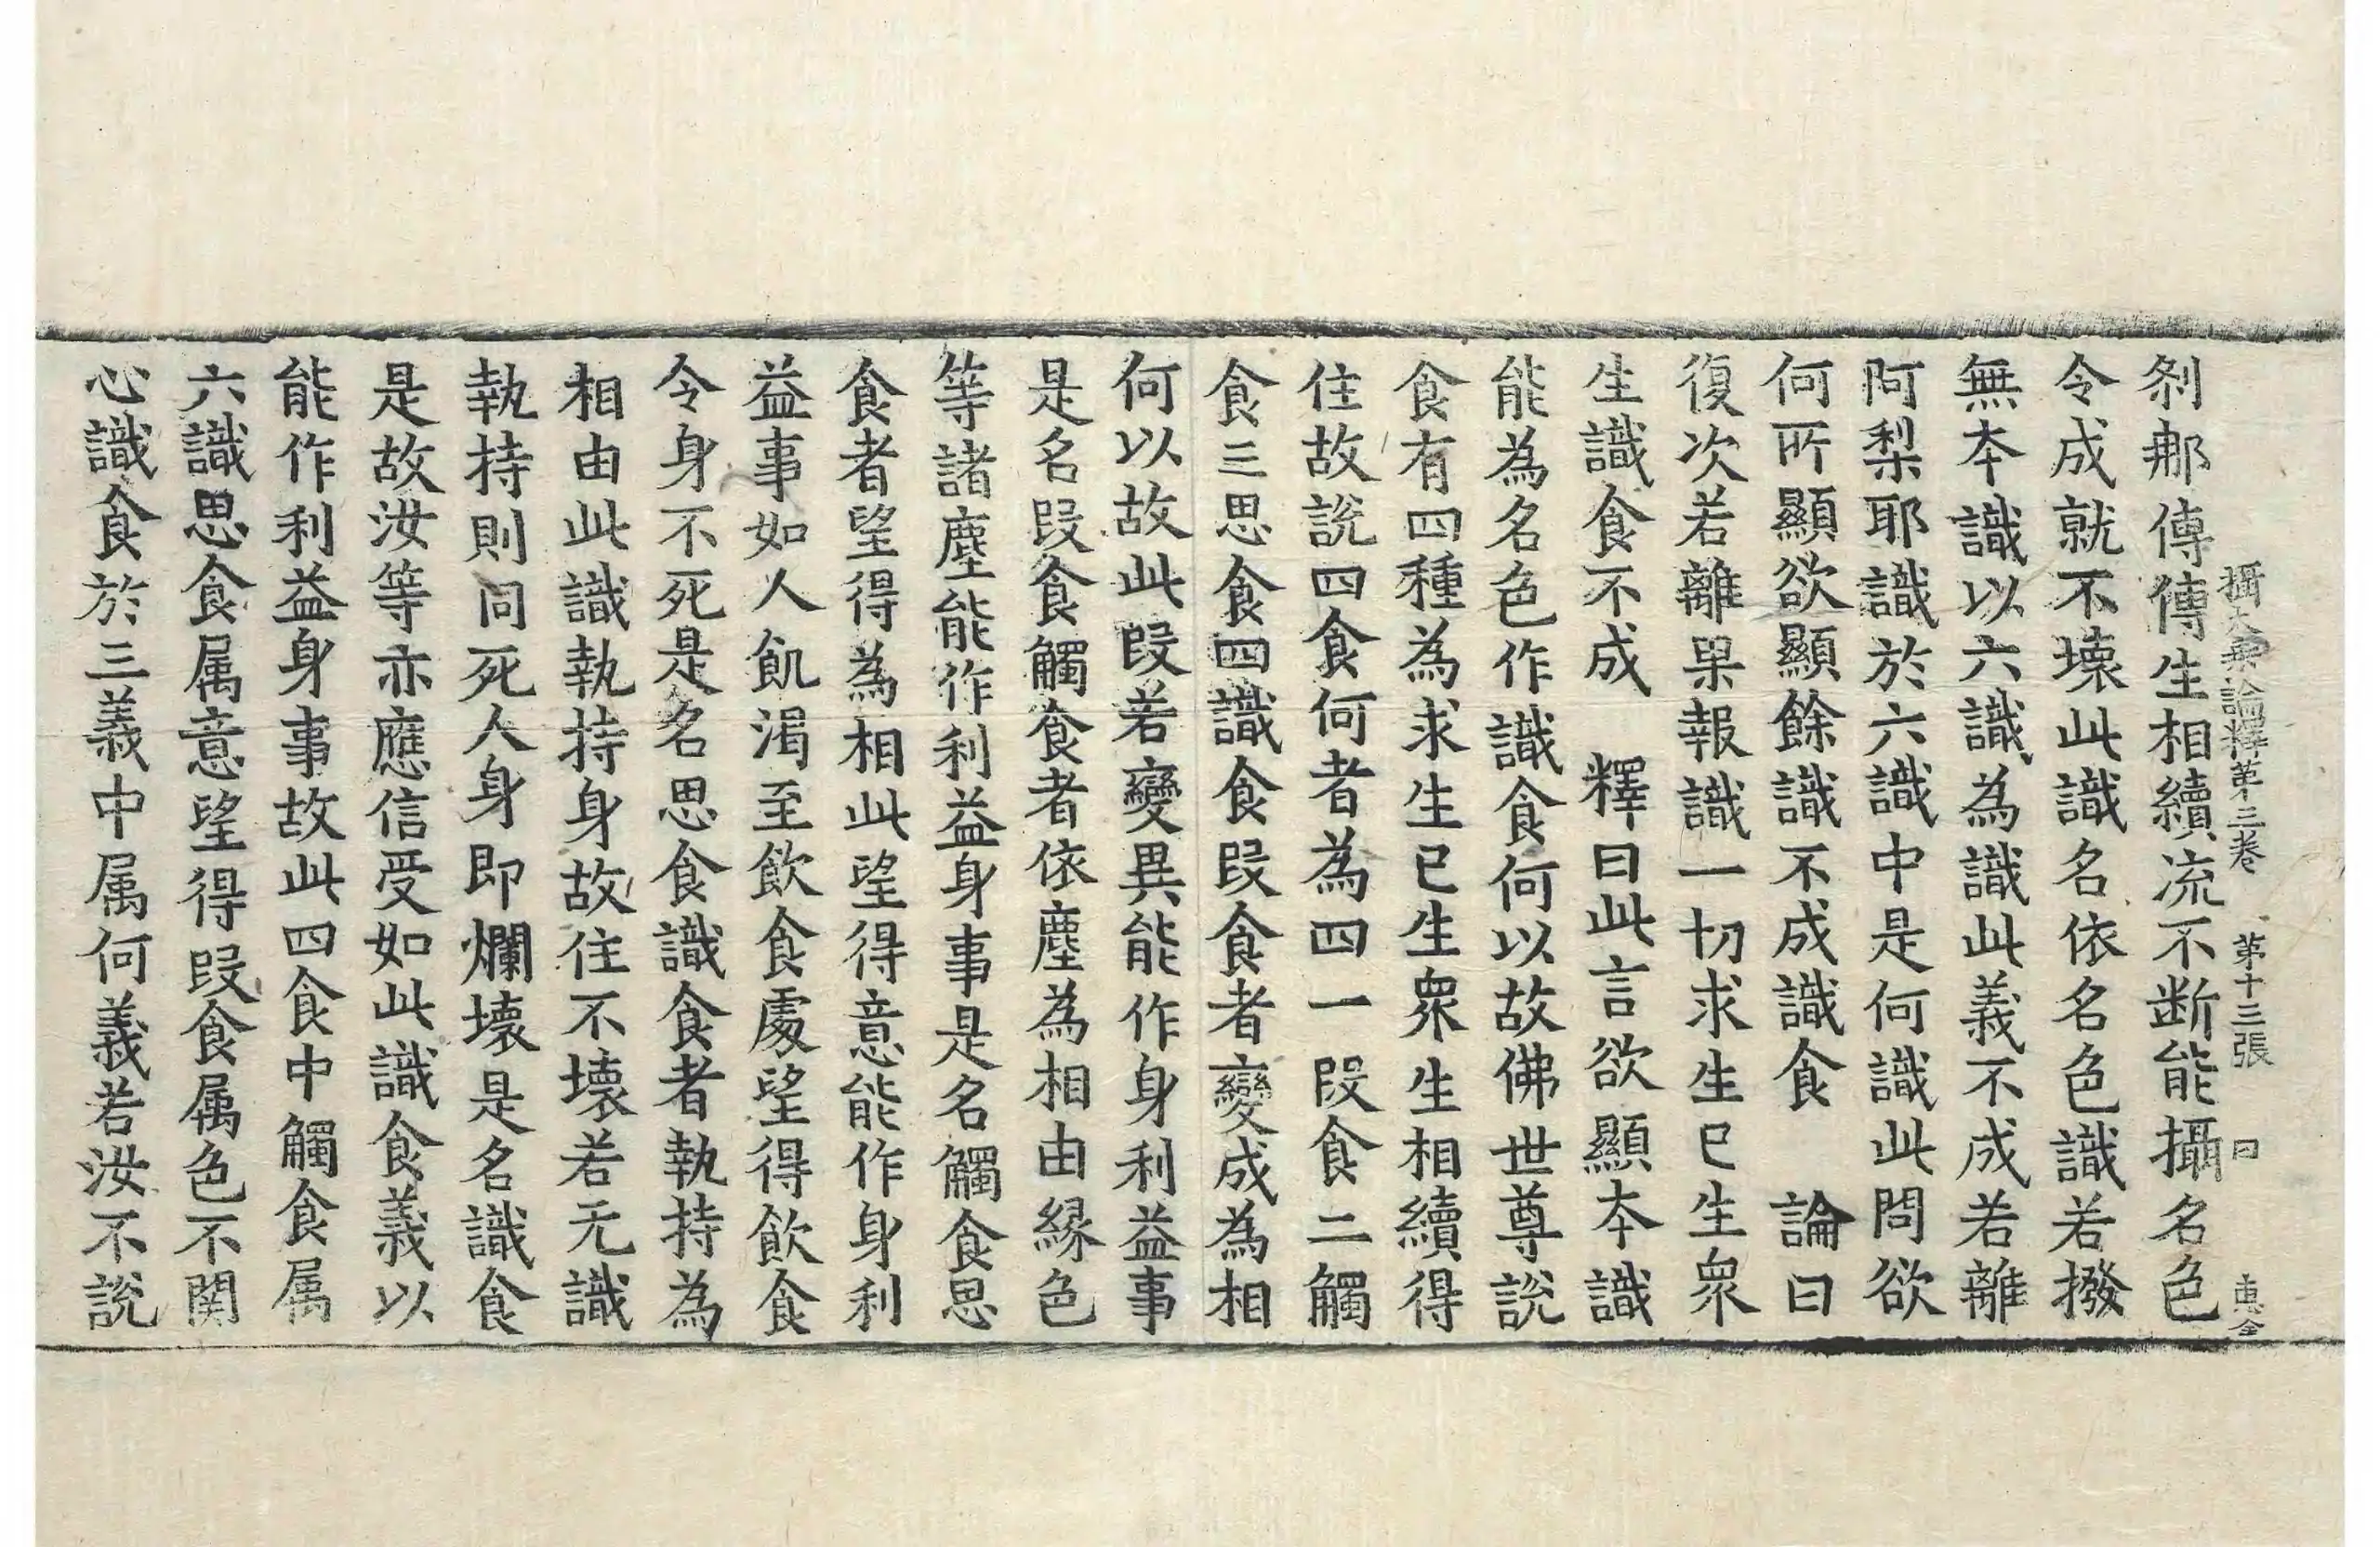 攝大乗論釋苐三卷　苐十三張　曰　惠全
刹那傳傳生相續流不断能攝名色
令成就不壊此識名依名色識若撥
無本識以六識為識此義不成若離
阿梨耶識於六識中是何識此問欲
何所顯欲顯餘識不成識食　論曰
復次若離果報識一切求生已生衆
生識食不成　釋曰此言欲顯本識
能為名色作識食何以故佛世尊說
食有四種為求生已生衆生相續得
住故說四食何者為四一段食二觸
食三思食四識食段食者變成為相
何以故此段若變異能作身利益事
是名段食觸食者依塵為相由縁色
等諸塵能作利益身事是名觸食思
食者望得為相此望得意能作身利
益事如人飢渴至飲食處望得飲食
令身不死是名思食識食者執持為
相由此識執持身故住不壊若无識
執持則同死人身即爛壊是名識食
是故汝等亦應信受如此識食義以
能作利益身事故此四食中觸食属
六識思食属意望得段食属色不関
心識食於三義中属何義若汝不說